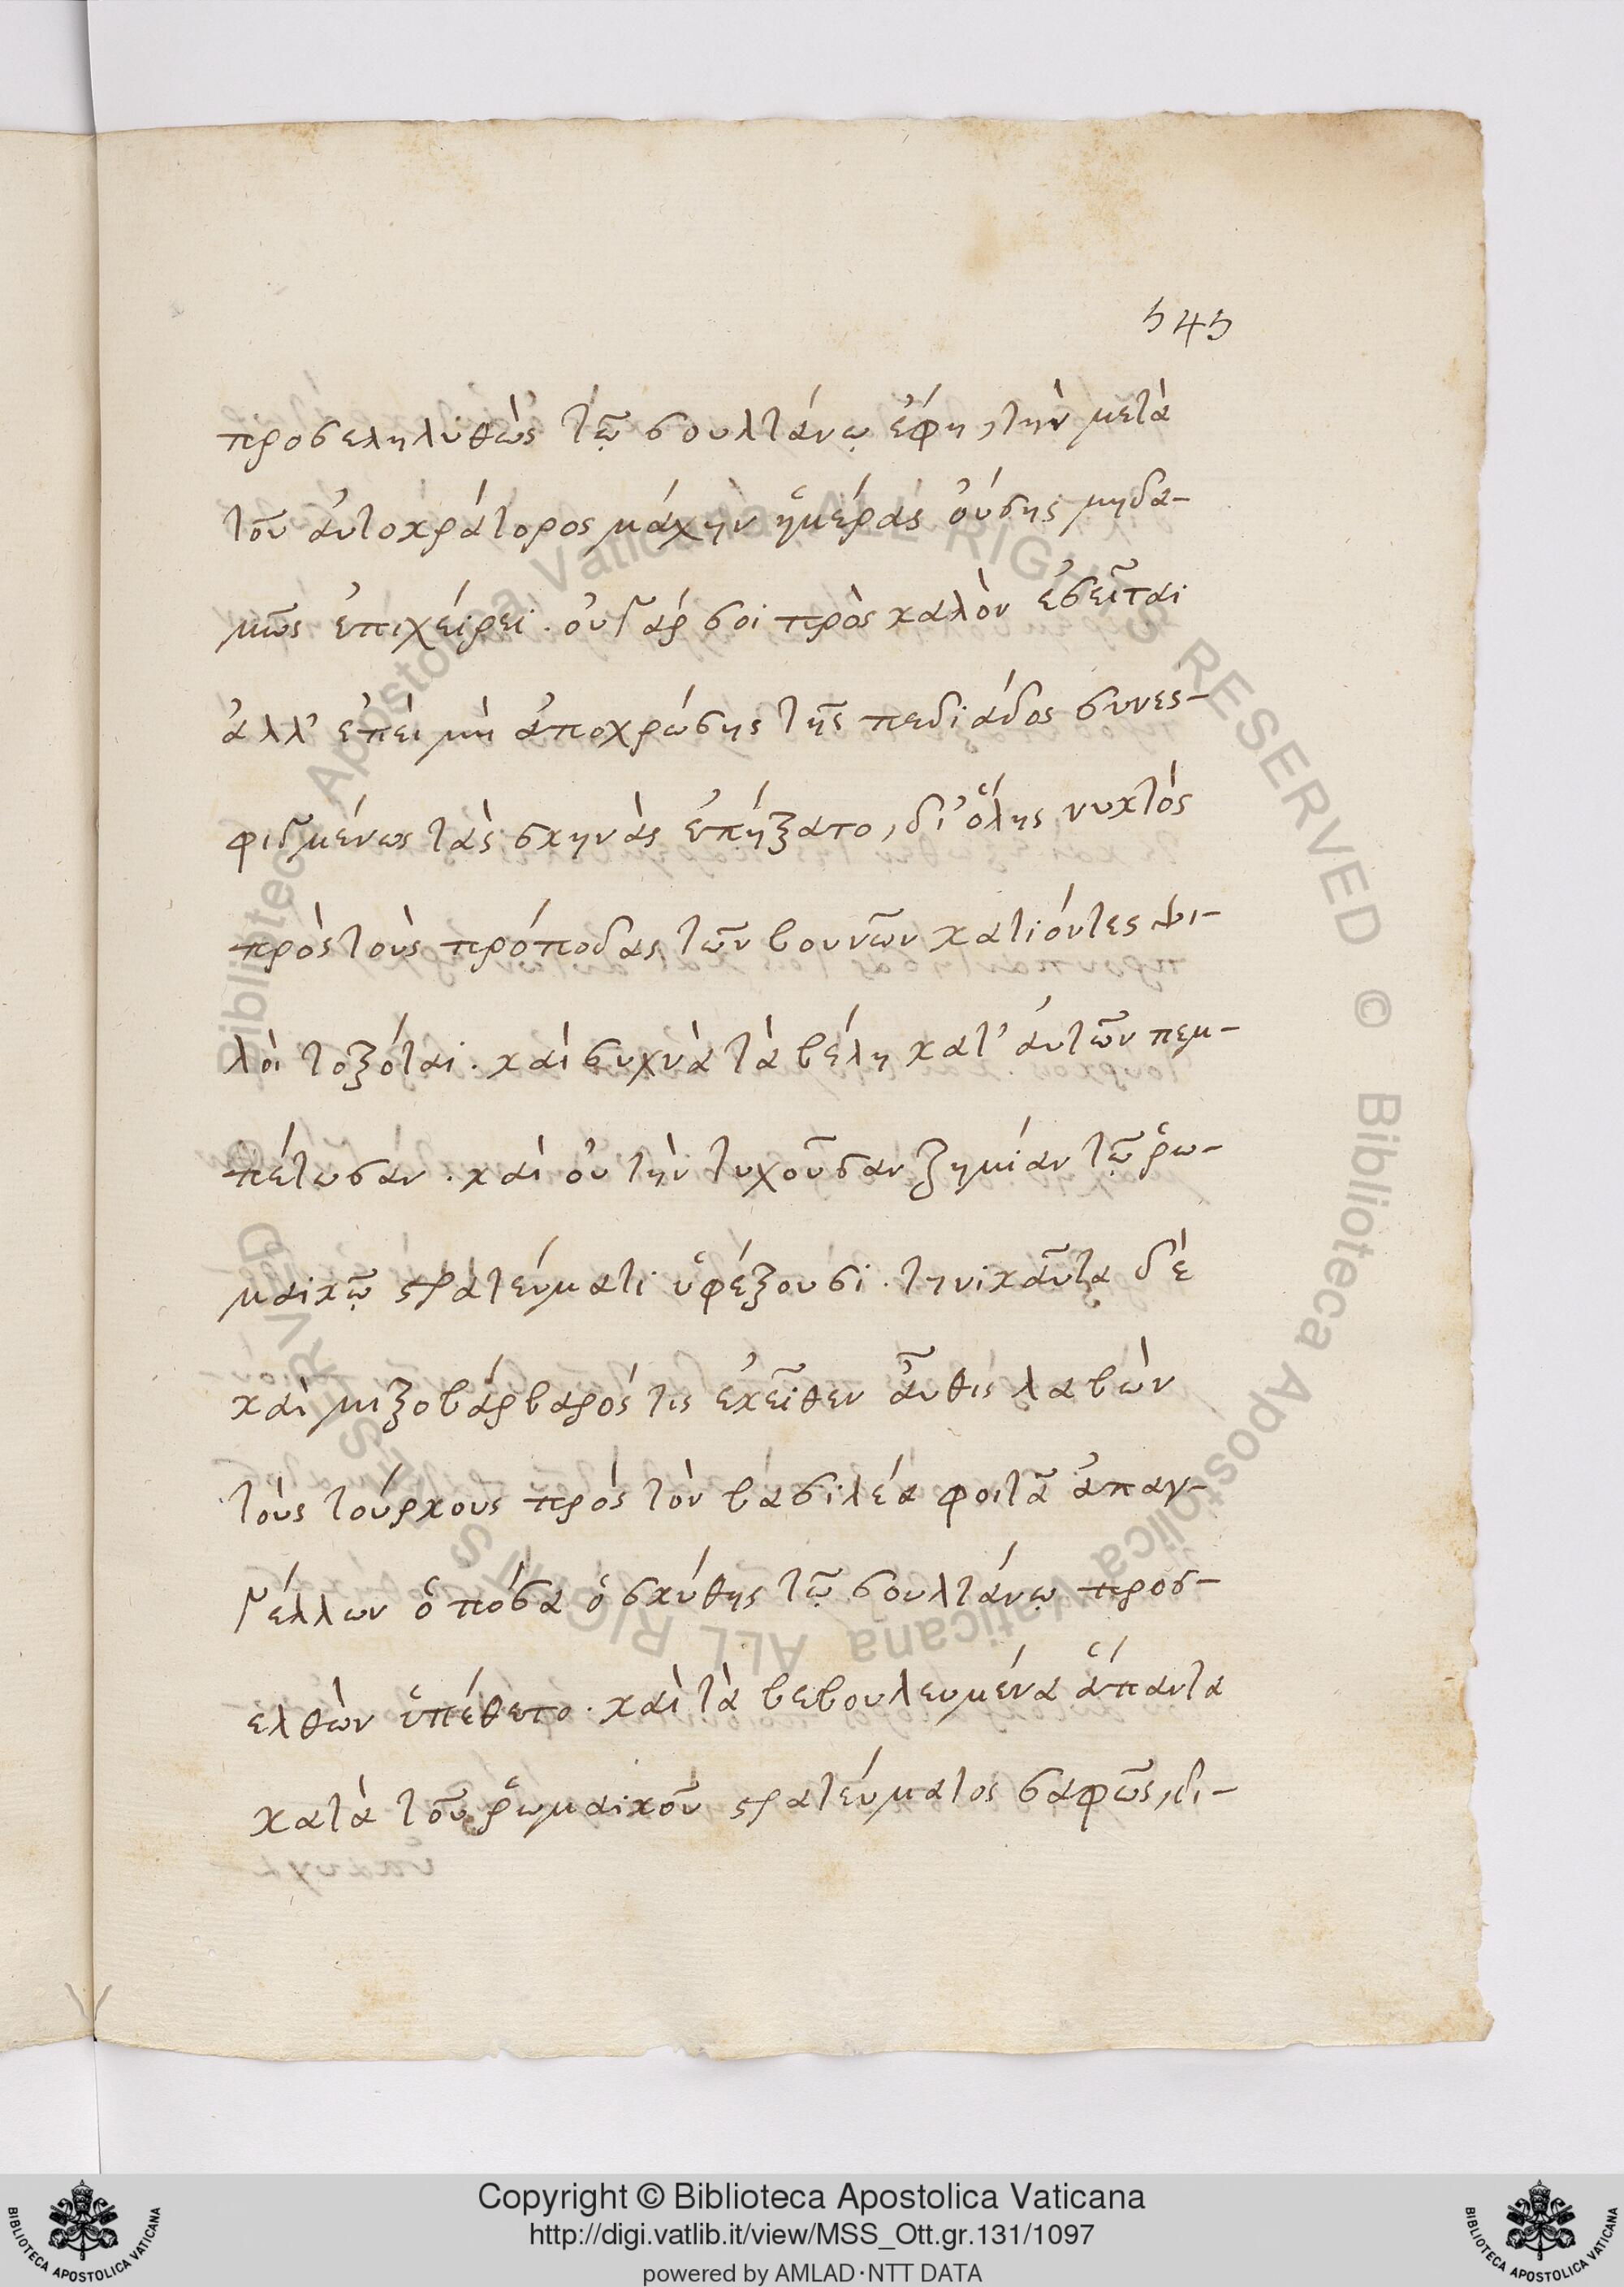 545
προσεληλυθὼς τῶ σουλτάνω ἔφη, τὴν μετὰ
τοῦ ἀυτοκράτορος μάχην ἡμέρας ὀύσης μηδα-
μῶς ἐπιχείρει. ὀυ γάρ σοι πρὸς καλὸν ἐσεῖται
ἀλλ' ἐπεὶ μὴ ἀποχρώσης τῆς πεδιάδος συνεσ-
φιγμένως τὰς σκηνὰς ἐπήξατο, δι' ὅλης νυκτὸς
πρὸς τοὺς πρόποδας τῶν βουνῶν κατιόντες ψι-
λοὶ τοξόται. καὶ συχνὰ τὰ βέλη κατ' ἀυτῶν πεμ-
πέτωσαν. καὶ ὀυ τὴν τυχοῦσαν ζημίαν τῷ ῥω-
μαικῷ στρατεύματι ὑφέξουσι. τηνικαῦτα δὲ
καὶ μιξοβάρβαρός τις ἐκεῖθεν ἆυθις λαβὼν
τοὺς τούρκους πρὸς τὸν βασιλέα φοιτᾶ ἀπαγ-
γέλλων ὁπόσα ὁ σκύθης τῷ σουλτάνω προσ-
ελθὼν ὑπέθετο. καὶ τὰ βεβουλευμένα ἅπαντα
κατὰ τοῦ ῥωμαικοῦ στρατεύματος σαφῶς, δι-
Copyright © Biblioteca Apostolica Vaticana
http://digi.vatlib.it/view/MSS_Ott.gr.131/1097
powered by AMLAD·NTT DATA
© Biblioteca Apostolica Vaticana ALL RIGHTS RESERVED
© Biblioteca Apostolica Vaticana ALL RIGHTS RESERVED
BIBLIOTECA APOSTOLICA VATICANA
BIBLIOTECA APOSTOLICA VATICANA